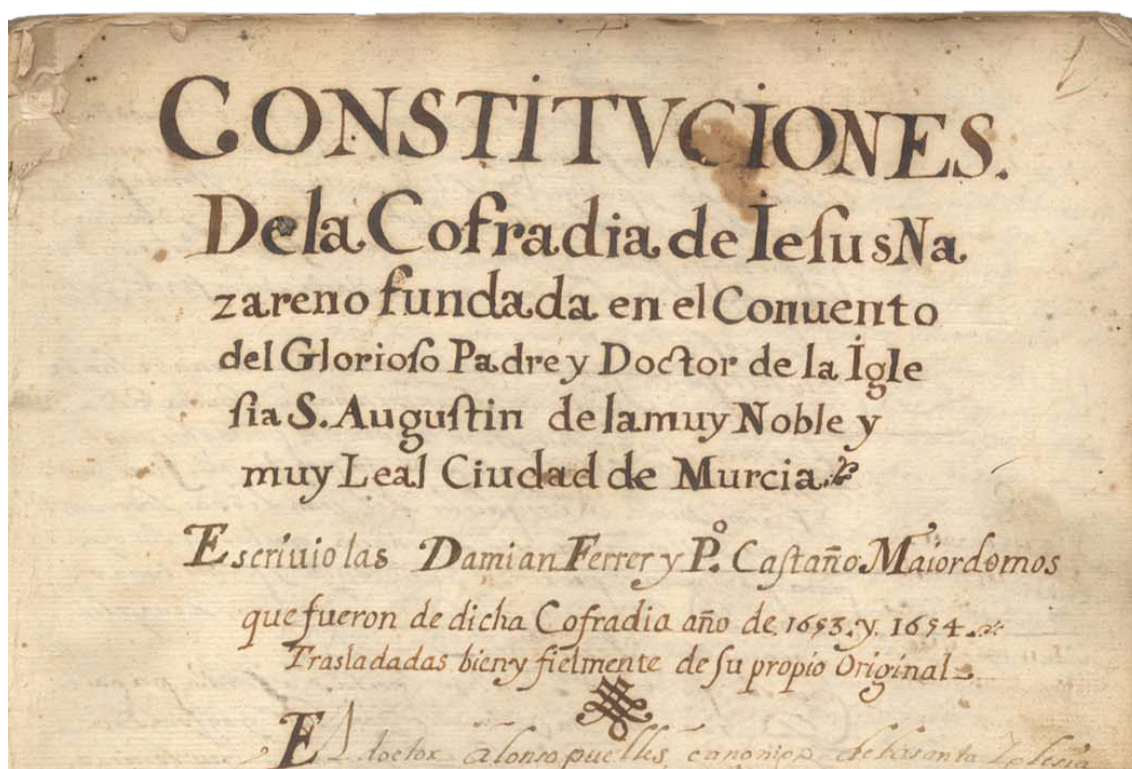 CONSTITVCIONES.
De la Cofradia de Iesus Na
zareno fundada en el Conuento
del Glorioso Padre y Doctor de la Igle
sia S. Augustin de la muy Noble y
muy Leal Ciudad de Murcia.
Escriuiolas Damian Ferrer y Pº. Castaño Maiordomos
que fueron de dicha Cofradia año de 1653. y. 1654.
Trasladadas bien y fielmente de su propio Original
El doctor alonso puelles canonigo de la santa Iglesia